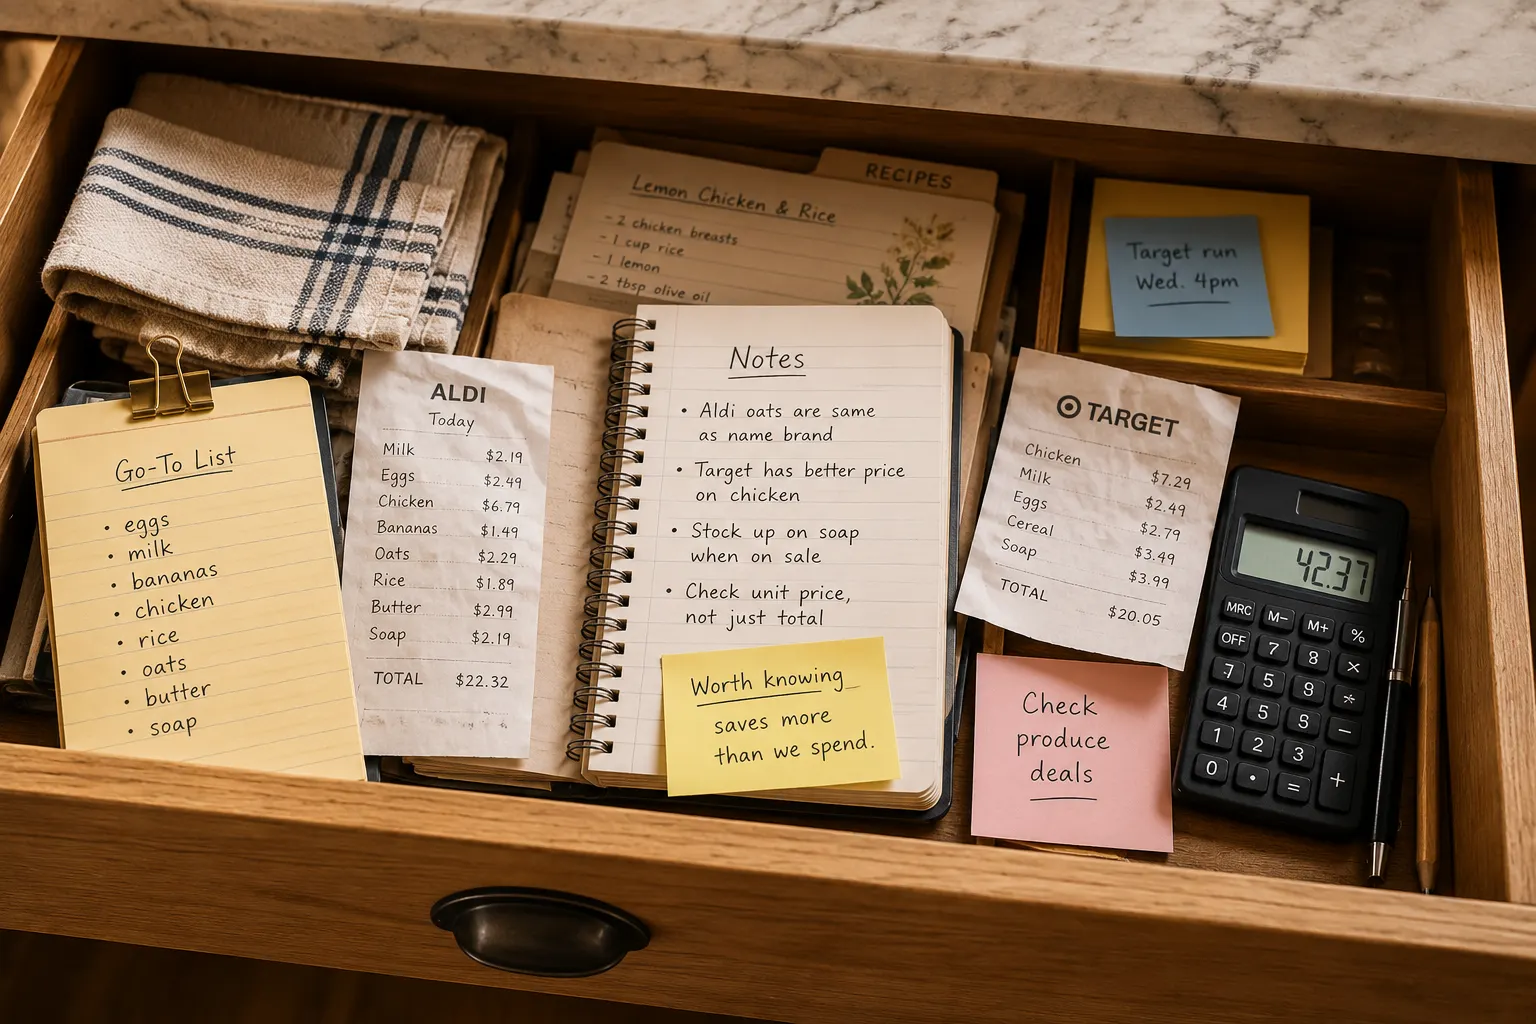 RECIPES
Lemon Chicken & Rice
- 2 chicken breasts
- 1 cup rice
- 1 lemon
- 2 tbsp olive oil
Target run
Wed. 4pm
Go-To List
• eggs
• milk
• bananas
• chicken
• rice
• oats
• butter
• soap
ALDI
Today
Milk $2.19
Eggs $2.49
Chicken $6.79
Bananas $1.49
Oats $2.29
Rice $1.89
Butter $2.99
Soap $2.19
TOTAL $22.32
Notes
• Aldi oats are same
as name brand
• Target has better price
on chicken
• Stock up on soap
when on sale
• Check unit price,
not just total
Worth knowing
saves more
than we spend.
TARGET
Chicken $7.29
Milk $2.49
Eggs $2.79
Cereal $3.49
Soap $3.99
TOTAL $20.05
Check
produce
deals
42.37
MRC M- M+ %
OFF 7 8 ×
7 5 9 *
4 5 5 −
1 2 3 +
0 • =